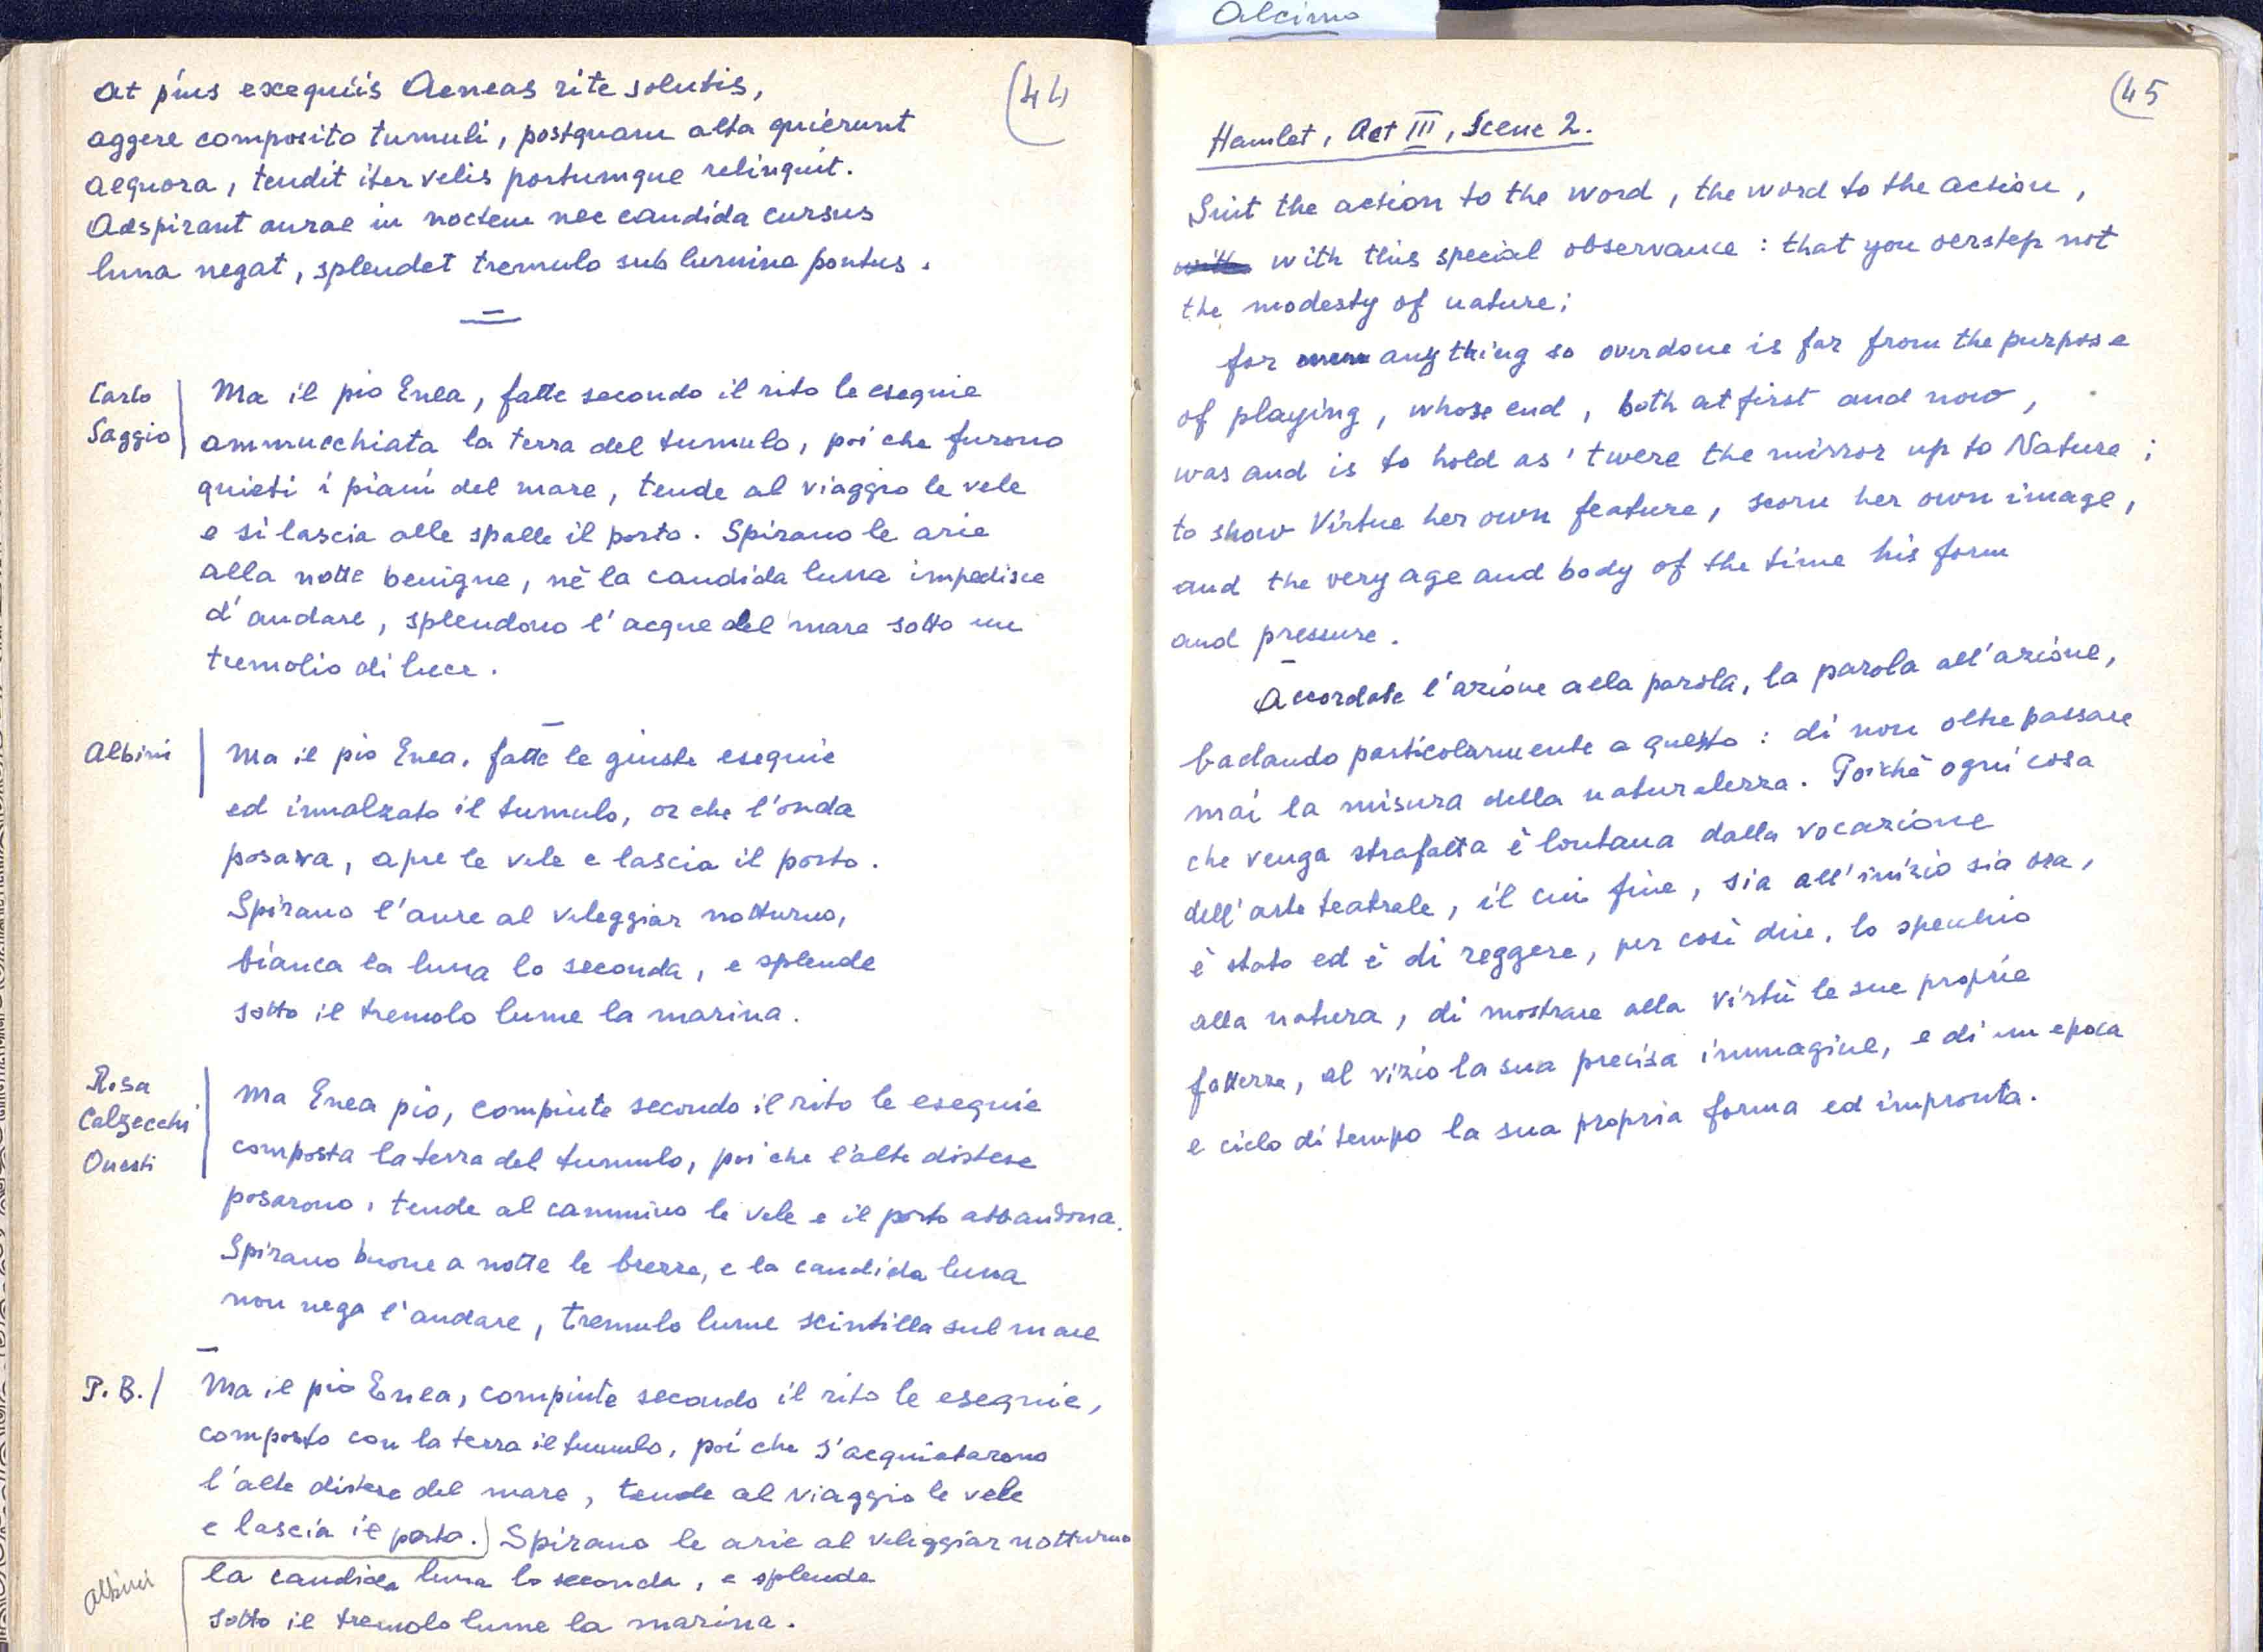 Alcimo
(44
at pius exequiis Aeneas rite solutis,
aggere composito tumuli, postquam alta quierunt
aequora, tendit iter velis portumque relinquit.
Adspirant aurae in noctem nec candida cursus
luna negat, splendet tremulo sub lumine pontus.
Carlo
Saggio
Ma il pio Enea, fatte secondo il rito le esequie
ammucchiata la terra del tumulo, poi che furono
quieti i piani del mare, tende al viaggio le vele
e si lascia alle spalle il porto. Spirano le arie
alla notte benigne, nè la candida luna impedisce
d'andare, splendono l'acque del mare sotto un
tremolio di luce.
Albini
Ma il pio Enea, fatte le giuste esequie
ed innalzato il tumulo, or che l'onda
posava, apre le vele e lascia il porto.
Spirano l'aure al veleggiar notturno,
bianca la luna lo seconda, e splende
sotto il tremolo lume la marina.
Rosa
Calzecchi
Onesti
Ma Enea pio, compiute secondo il rito le esequie
composta la terra del tumulo, poi che l'alte distese
posarono, tende al cammino le vele e il porto abbandona.
Spirano buone a notte le brezze, e la candida luna
non nega l'andare, tremulo lume scintilla sul mare
P. B. /
Ma il pio Enea, compiute secondo il rito le esequie,
composto con la terra il tumulo, poi che s'acquietarono
l'alte distese del mare, tende al viaggio le vele
e lascia il porto. Spirano le arie al veleggiar notturno
Albini
la candida luna lo seconda, e splende
sotto il tremolo lume la marina.
(45
Hamlet, Act III, Scene 2.
Suit the action to the word, the word to the action,
with this special observance: that you oerstep not
the modesty of nature;
for any thing so overdone is far from the purpose
of playing, whose end, both at first and now,
was and is to hold as 'twere the mirror up to Nature;
to show Virtue her own feature, scorn her own image,
and the very age and body of the time his form
and pressure.
Accordate l'azione alla parola, la parola all'azione,
badando particolarmente a questo: di non oltrepassare
mai la misura della naturalezza. Poichè ogni cosa
che venga strafatta è lontana dalla vocazione
dell'arte teatrale, il cui fine, sia all'inizio sia ora,
è stato ed è di reggere, per così dire, lo specchio
alla natura, di mostrare alla virtù le sue proprie
fattezze, al vizio la sua precisa immagine, e di un epoca
e ciclo di tempo la sua propria forma ed impronta.